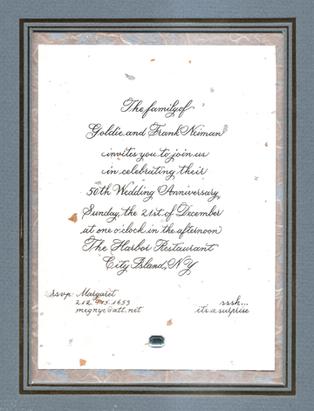 The family of
Goldie and Frank Neiman
invites you to join us
in celebrating their
50th Wedding Anniversary
Sunday, the 21st of December
at one o'clock in the afternoon
The Harbor Restaurant
City Island, NY
rsvp: Margaret
sssh...
it's a surprise